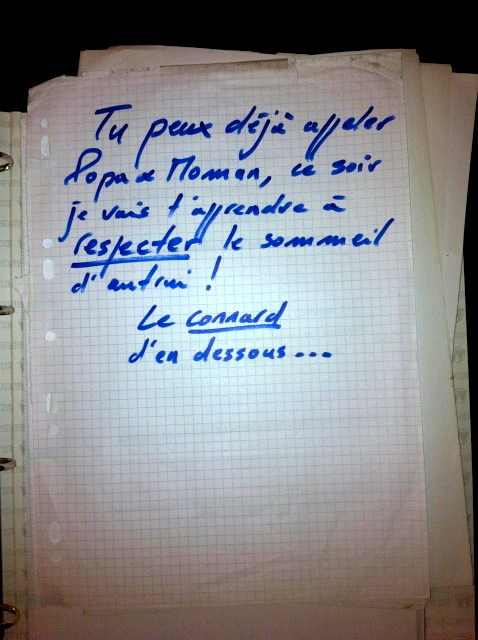 Tu peux déjà appeler
Popa & Moman, ce soir
je vais t'apprendre à
respecter le sommeil
d'autrui !
Le connard
d'en dessous...